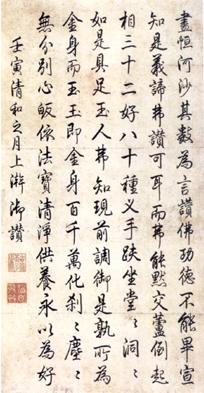 盡恒河沙其數為言讚佛功德不能畢宣
知是義諦弗讚可耳而弗能默交蘆倒起
相三十二好八十種义手趺坐堂〻洞〻
如是具足玉人弗知現前調御是孰所為
金身而玉玉即金身百千萬化刹〻塵〻
無分別心皈依法寶清淨供養永以為好
壬寅清和之月上澣御讚